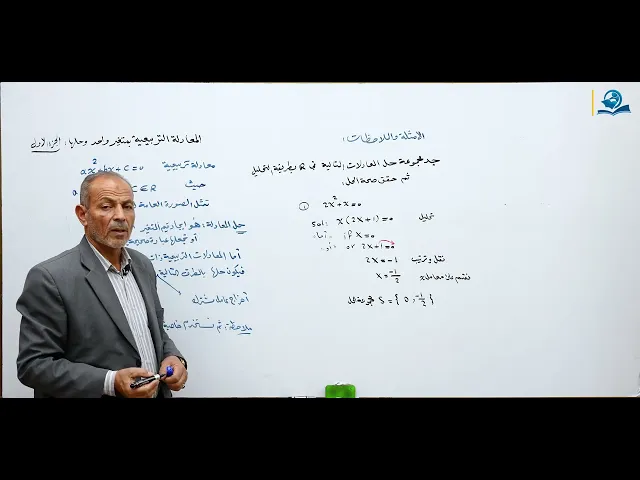 المعادلة التربيعية بمتغير واحد وحلها: الجزء الاول
معادلة تربيعية ax²+bx+c=0
حيث
تمثل الصورة العامة
حل المعادلة: هو ايجاد قيم المتغير
أو تجعل عبارة صحيحة
أما المعادلات التربيعية ذات
فيكون حلها بالطرق التالية
اخراج عامل مشترك
ملاحظة: ثم نستخدم خاصية
الامثلة والملاحظات:
جد مجموعة حل المعادلات التالية في R بطريقة التحليل
ثم حقق صحة الحل:
① 2x²+x=0
sol: x(2x+1)=0 تحليل
اما: if x=0
او: or 2x+1=0
2x=-1 نقل وترتيب
x=-1/2 نقسم على معامل x
مجموعة الحل S={0,-1/2}